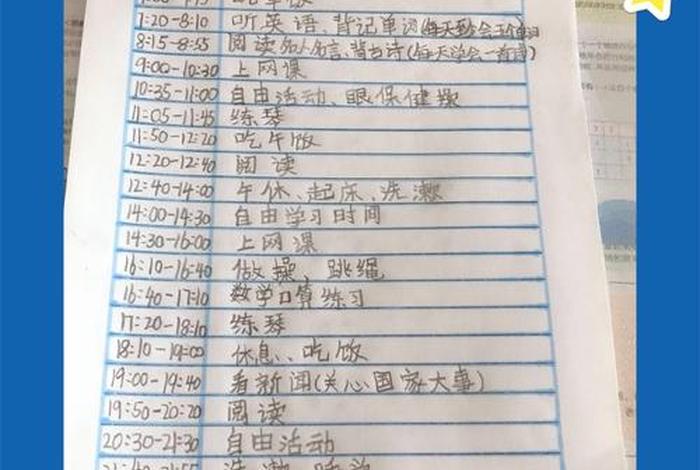 7:20-8:10 听英语、背记单词(每天至少会五个单词
8:15-8:55 阅读名人名言、背古诗(每天学会一首诗)
9:00-10:30 上网课
10:35-11:00 自由活动、眼保健操
11:05-11:45 练琴
11:50-12:20 吃午饭
12:20-12:40 阅读
12:40-14:00 午休、起床、洗漱
14:00-14:30 自由学习时间
14:30-16:00 上网课
16:10-16:40 做操、跳绳
16:40-17:10 数学口算练习
17:20-18:10 练琴
18:10-19:00 休息、吃饭
19:00-19:40 看新闻(关心国家大事)
19:50-20:20 阅读
20:30-21:30 自由活动